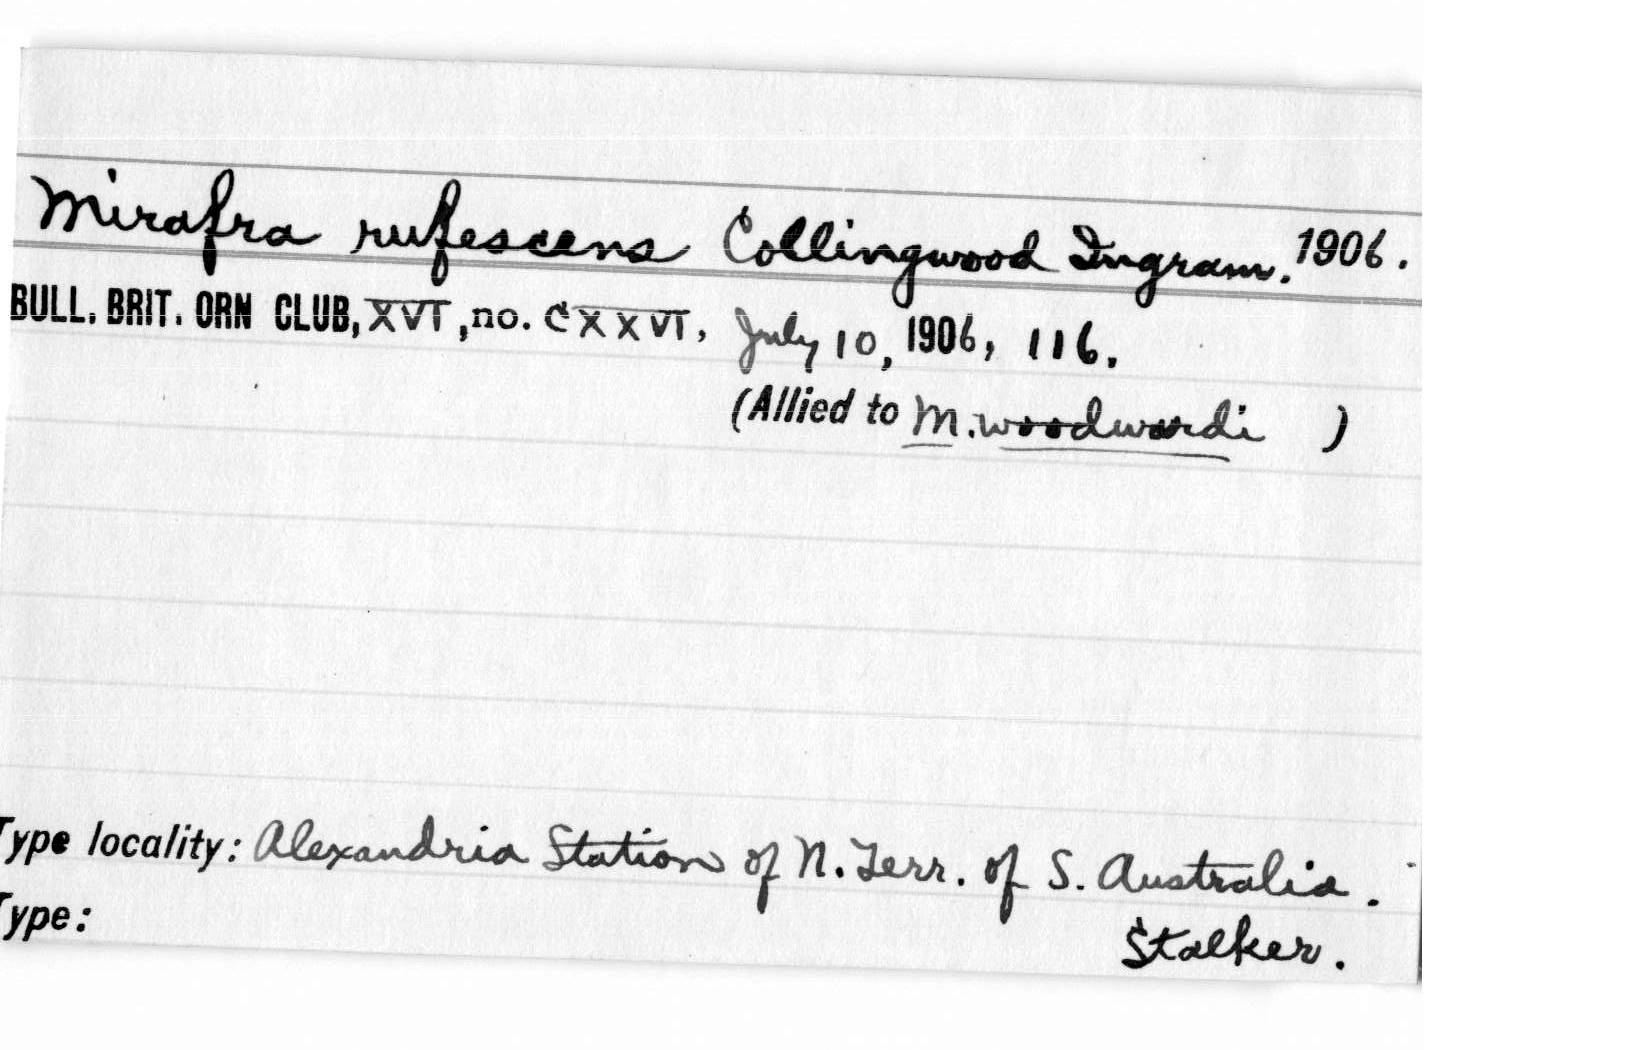 Mirafra rufescens Collingwood Ingram. 1906.
BULL. BRIT. ORN CLUB, XVI, no. CXXVI, July 10, 1906, 116.
(Allied to M. woodwardi )
Type locality: Alexandria Station of N. Terr. of S. Australia.
Type: Stalker.